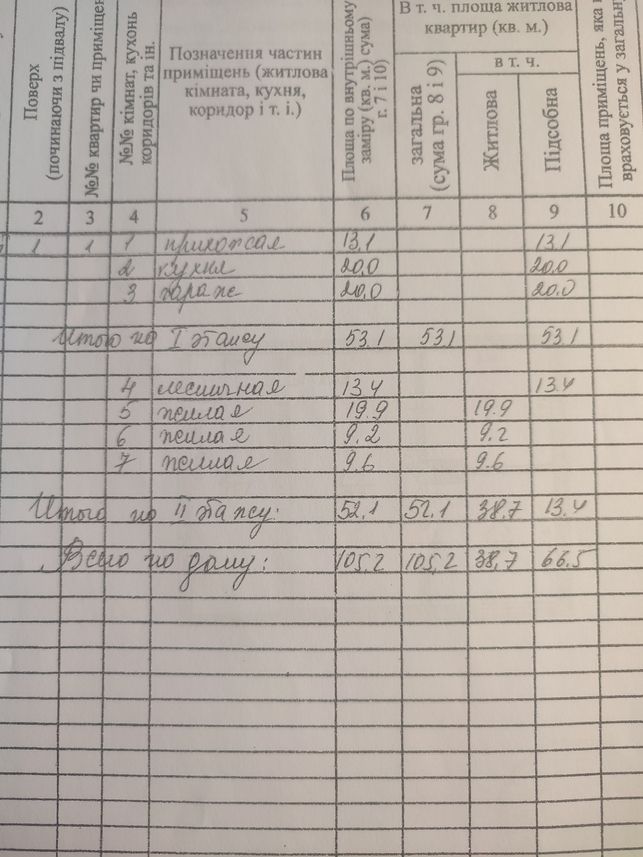 Поверх (починаючи з підвалу)
№№ квартир чи приміщен
№№ кімнат, кухонь коридорів та ін.
Позначення частин приміщень (житлова кімната, кухня, коридор і т. і.)
Площа по внутрішньому заміру (кв. м.) сума) г. 7 і 10)
В т. ч. площа житлова квартир (кв. м.)
загальна (сума гр. 8 і 9)
в т. ч.
Житлова
Підсобна
Площа приміщень, яка враховується у загальн
2 3 4 5 6 7 8 9 10
1 1 1 прихожая 13,1 13,1
2 кухня 20,0 20,0
3 гараж 20,0 20,0
Итого по I этажу 53,1 53,1 53,1
4 лестничная 13.4 13.4
5 жилая 19.9 19.9
6 жилая 9.2 9.2
7 жилая 9.6 9.6
Итого по II этажу: 52,1 52,1 38,7 13.4
Всего по дому: 105,2 105,2 38,7 66.5